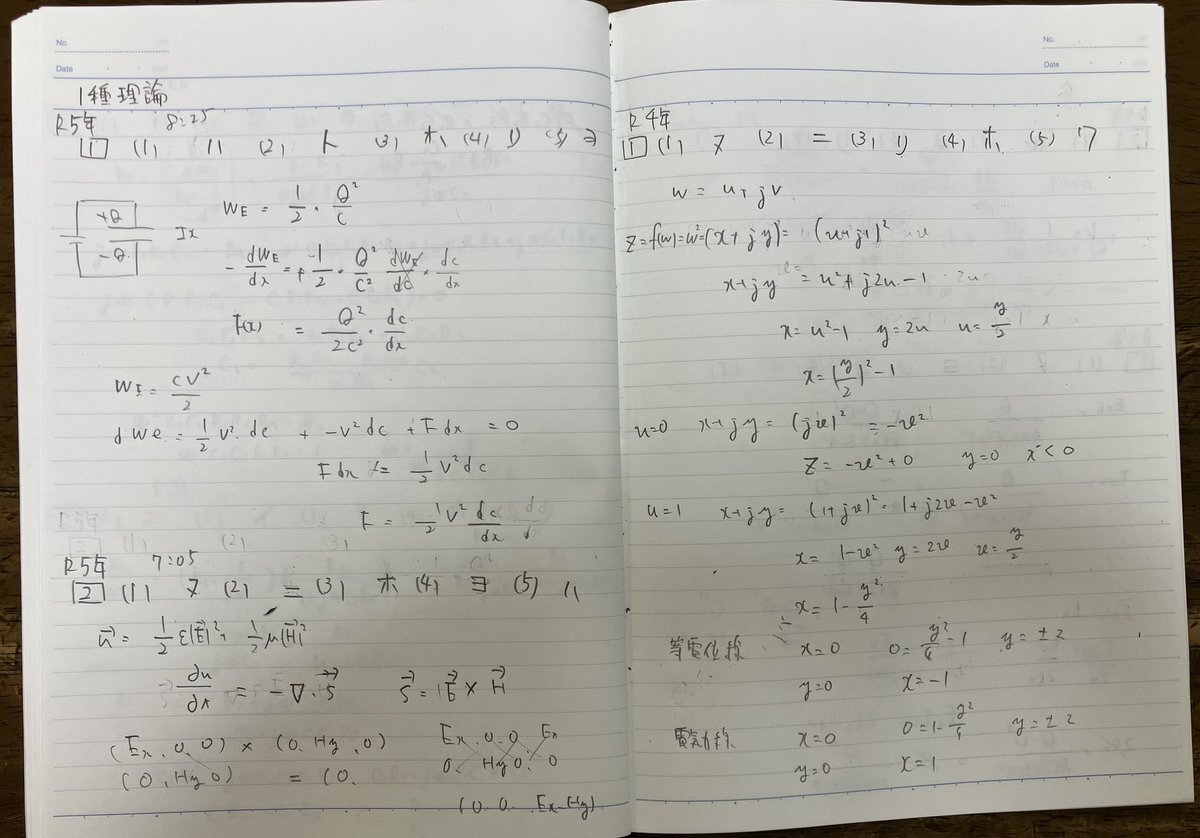 No.
Date
1種理論
R5年 8:25
1 (1) リ (2) ト (3) ホ (4) リ (5) ヨ
+Q
-Q
Ix
WE = 1/2 · Q²/C
- dWE/dx = + -1/2 · Q²/C² dWE/dC · dc/dx
F(x) = Q²/2C² · dc/dx
WE = CV²/2
dWe = 1/2 V² dc + -V² dc + F dx = 0
F dx = 1/2 V² dc
F = 1/2 V² dc/dx
R5年 7:05
2 (1) ヌ (2) ニ (3) ホ (4) ヨ (5) ハ
u = 1/2 ε|E|² + 1/2 μ|H|²
∂u/∂t = -∇·S S = E × H
(Ex, 0, 0) × (0, Hy, 0)
(0, Hy 0) = (0,
Ex 0 0 Ex
0 Hy 0 0
(0 0 Ex Hy)
No.
Date
R4年
1 (1) ヌ (2) ニ (3) リ (4) ホ (5) ワ
w = u + jv
Z = f(w) = w² = (x + jy) = (u + j1)²
x + jy = u² + j2u - 1
x = u² - 1 y = 2u u = y/2
x = (y/2)² - 1
u=0 x + jy = (jv)² = -v²
Z = -v² + 0 y = 0 x < 0
u=1 x + jy = (1 + jv)² = 1 + j2v - v²
x = 1 - v² y = 2v v = y/2
x = 1 - y²/4
等電位線 x = 0 0 = y²/4 - 1 y = ±2
y = 0 x = -1
電気力線 x = 0 0 = 1 - y²/4 y = ±2
y = 0 x = 1